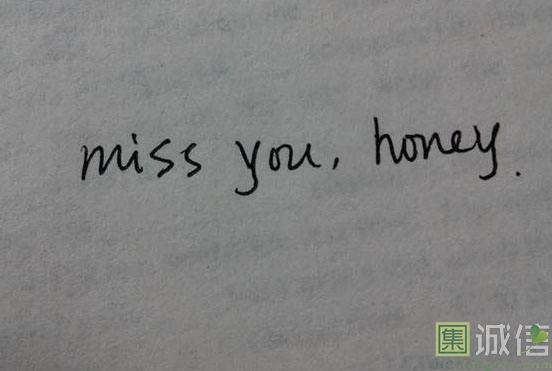 miss you, honey.
集 诚信